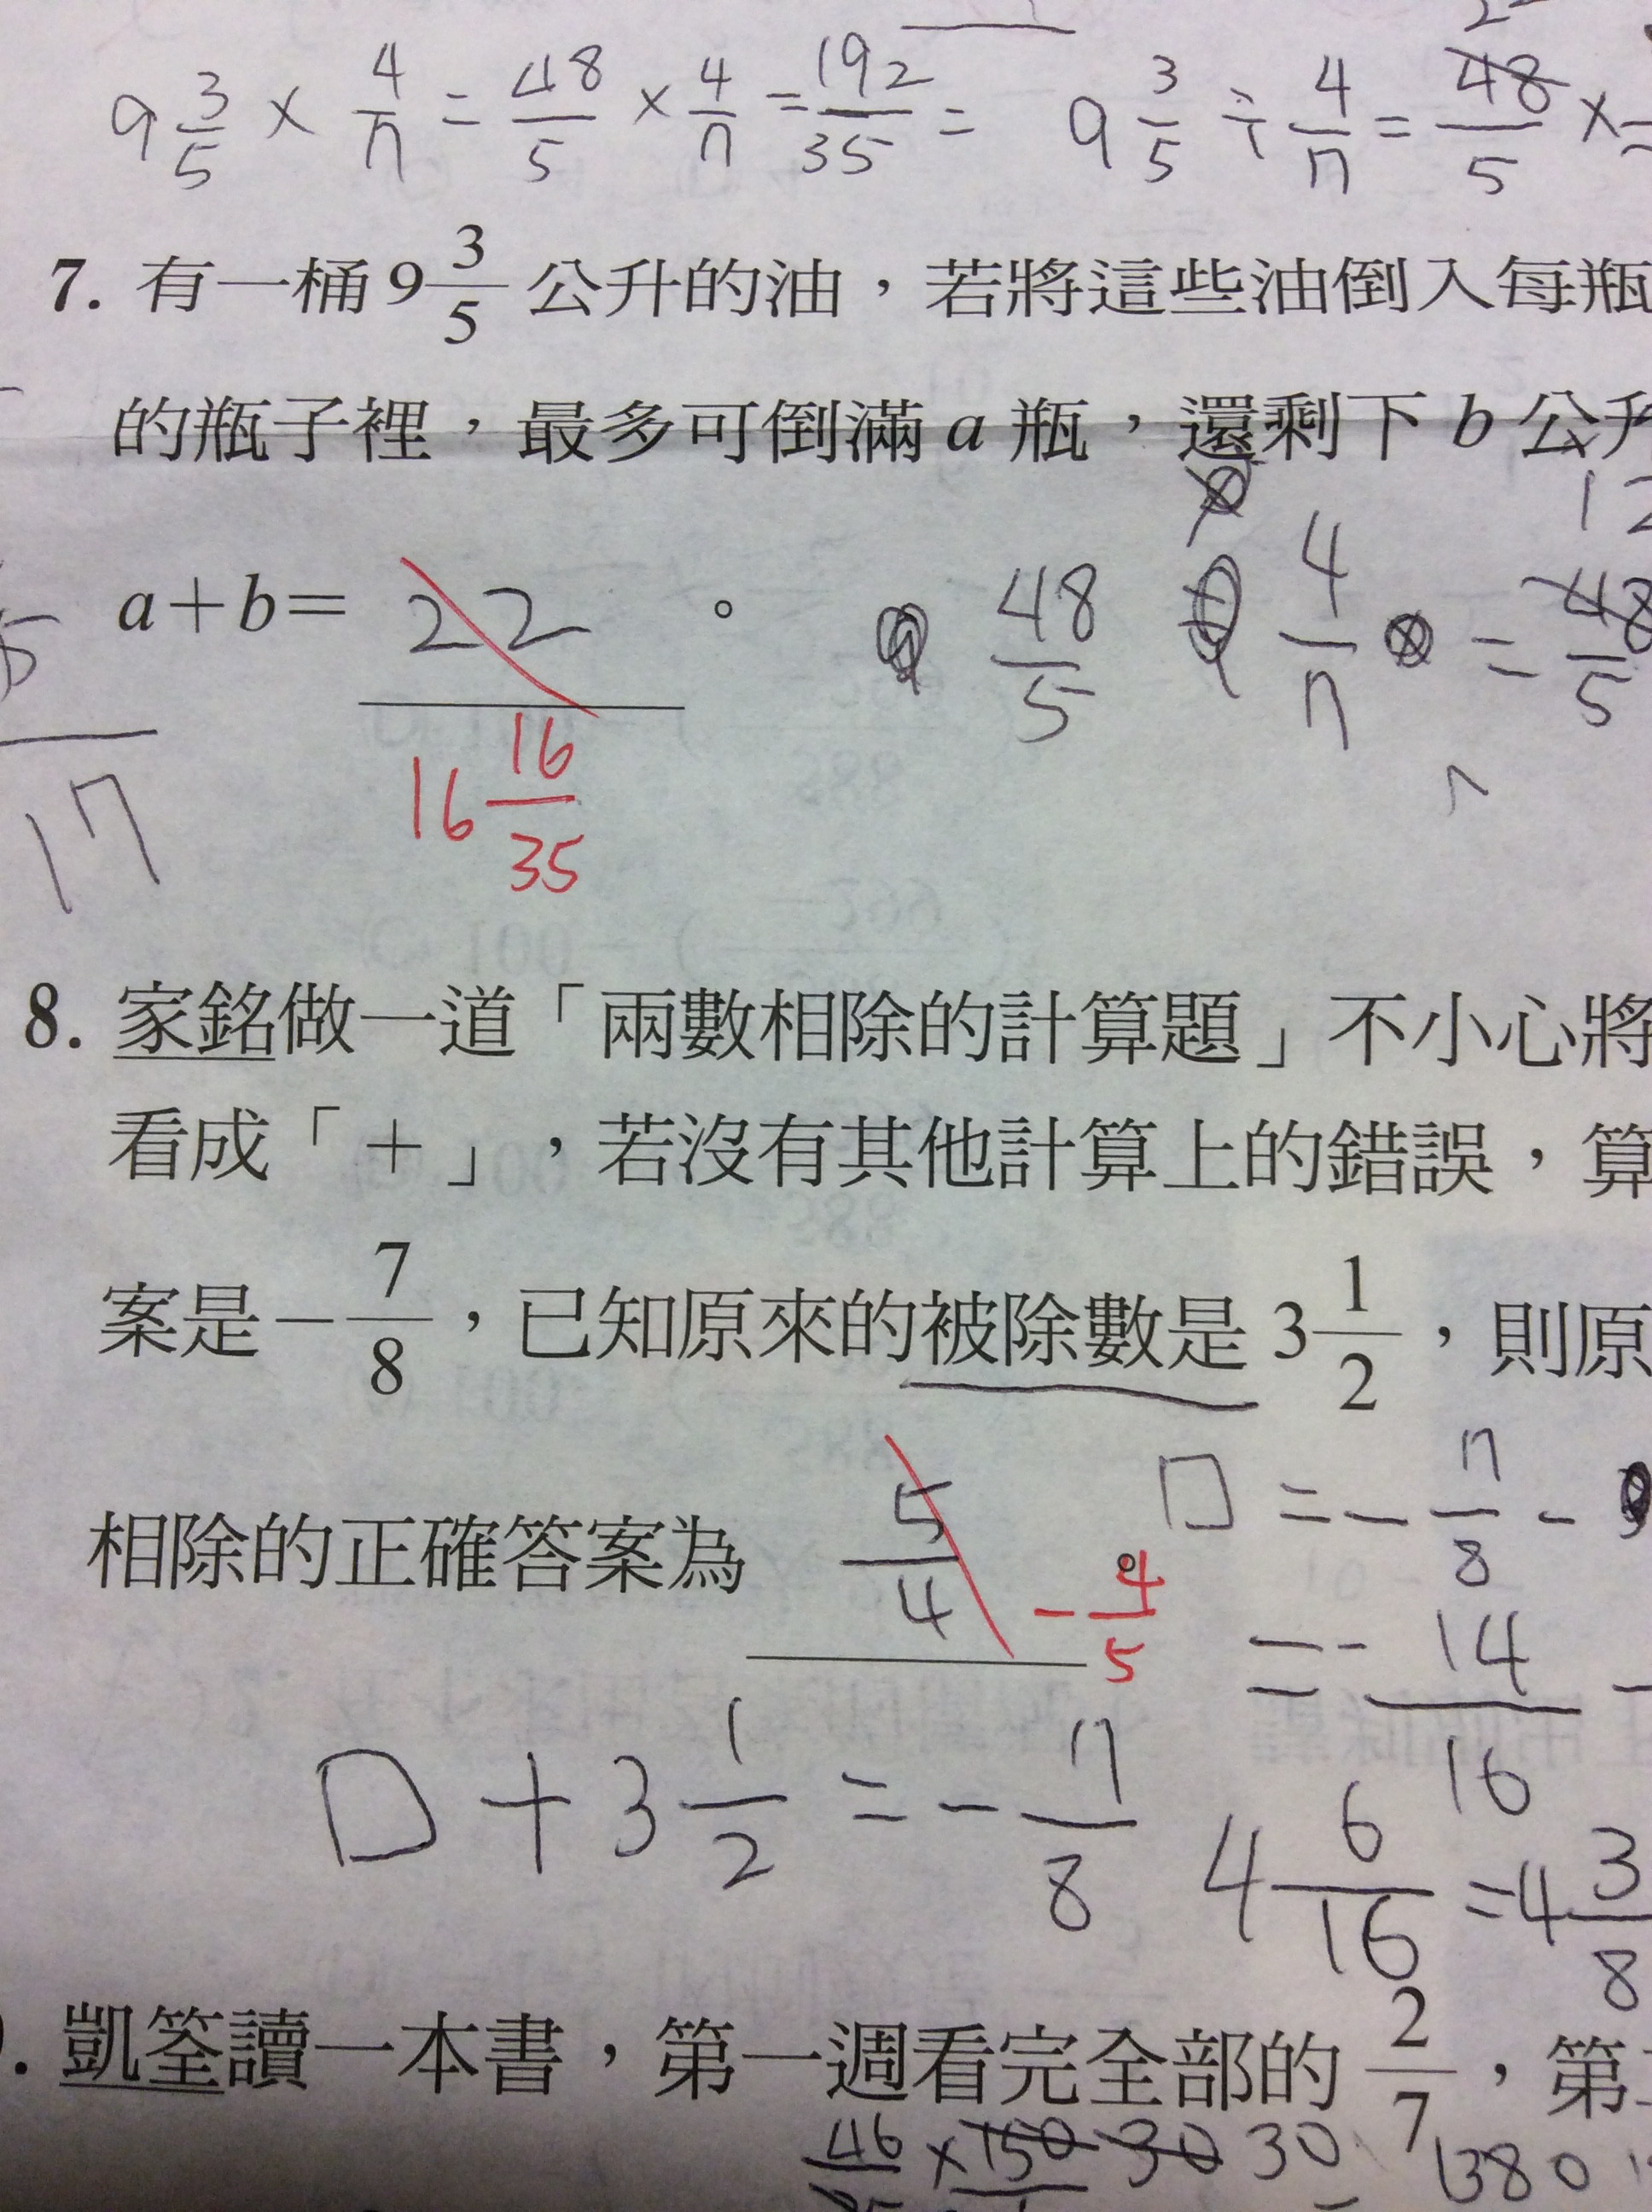 9 3/5 × 4/7 = 48/5 × 4/7 = 192/35 = 9 3/5 ÷ 4/7 = 48/5 ×
7. 有一桶 9 3/5 公升的油，若將這些油倒入每瓶
的瓶子裡，最多可倒滿 a 瓶，還剩下 b 公升
a＋b＝ 22 。 48/5 4/7 = 48/5
12
16 16/35
17
8. 家銘做一道「兩數相除的計算題」不小心將
看成「＋」，若沒有其他計算上的錯誤，算
案是－7/8，已知原來的被除數是 3 1/2，則原
相除的正確答案為 5/4 。 -4/5
□ = - 7/8 -
= - 14/16 -
□ + 3 1/2 = - 7/8
4 6/16 = 4 3/8
. 凱筌讀一本書，第一週看完全部的 2/7，第
46 × 150 30 30 1380